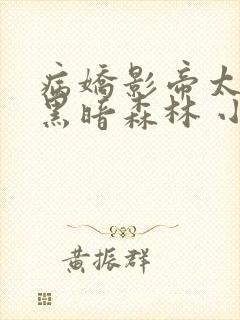 病嬌影帝太
黑暗森林 小
黃振群